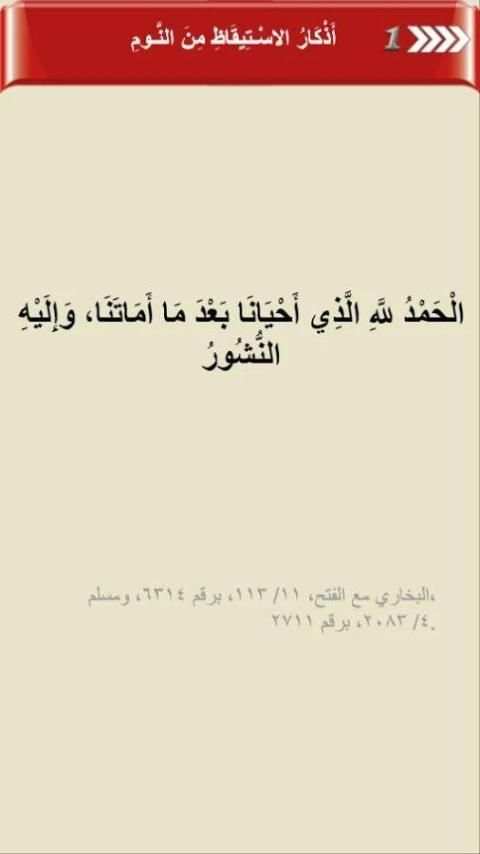 أَذْكَارُ الاسْتِيقَاظِ مِنَ النَّومِ 1
الْحَمْدُ للَّهِ الَّذِي أَحْيَانَا بَعْدَ مَا أَمَاتَنَا، وَإِلَيْهِ
النُّشُورُ
،البخاري مع الفتح، ١١/ ١١٣، برقم ٦٣١٤، ومسلم
.٤/ ٢٠٨٣، برقم ٢٧١١